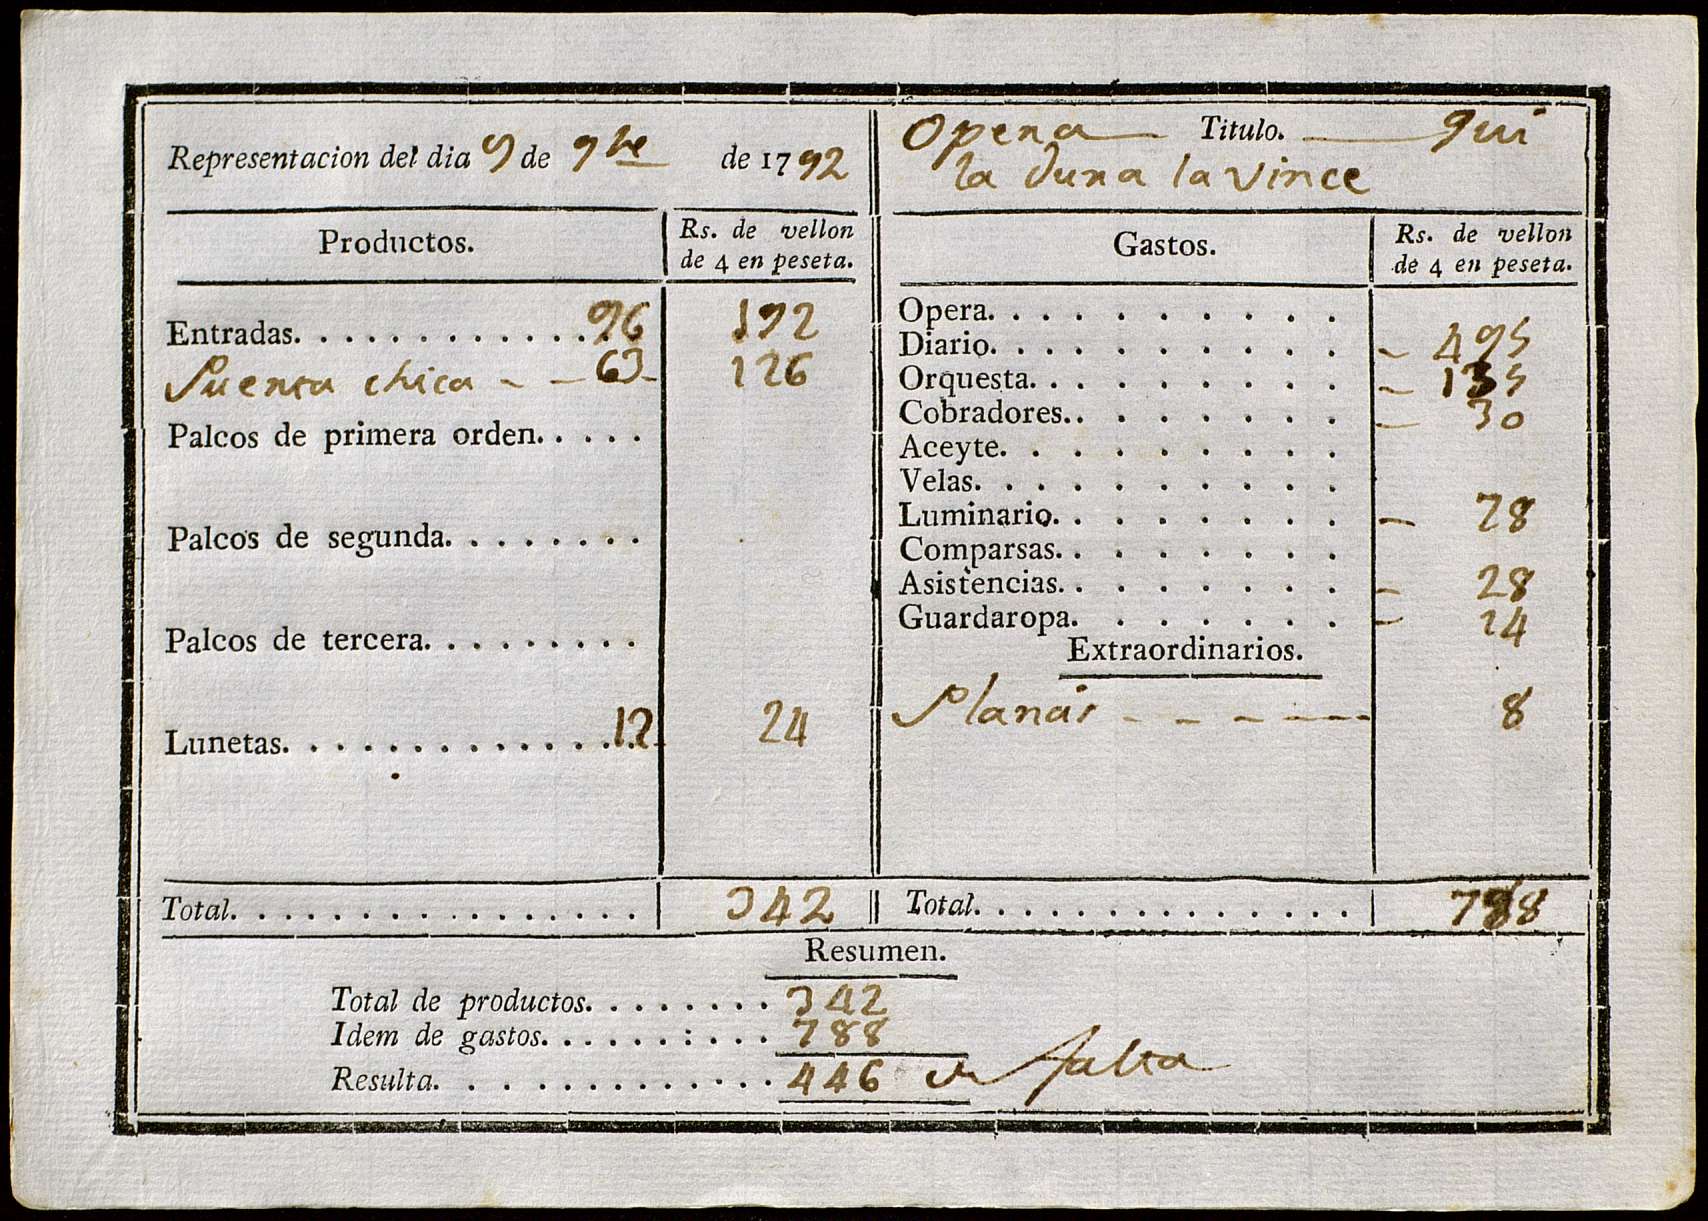 Representacion del dia 9 de 9bre de 1792
Opera Titulo. qui
la dura la vince
Productos.
Rs. de vellon
de 4 en peseta.
Gastos.
Rs. de vellon
de 4 en peseta.
Entradas. 96 192
Puerta chica 63 126
Palcos de primera orden.
Palcos de segunda.
Palcos de tercera.
Lunetas. 12 24
Opera.
Diario. 495
Orquesta. 135
Cobradores. 30
Aceyte.
Velas.
Luminario. 78
Comparsas.
Asistencias. 28
Guardaropa. 14
Extraordinarios.
8
Total. 342
Total. 788
Resumen.
Total de productos. 342
Idem de gastos. 788
Resulta. 446 falta